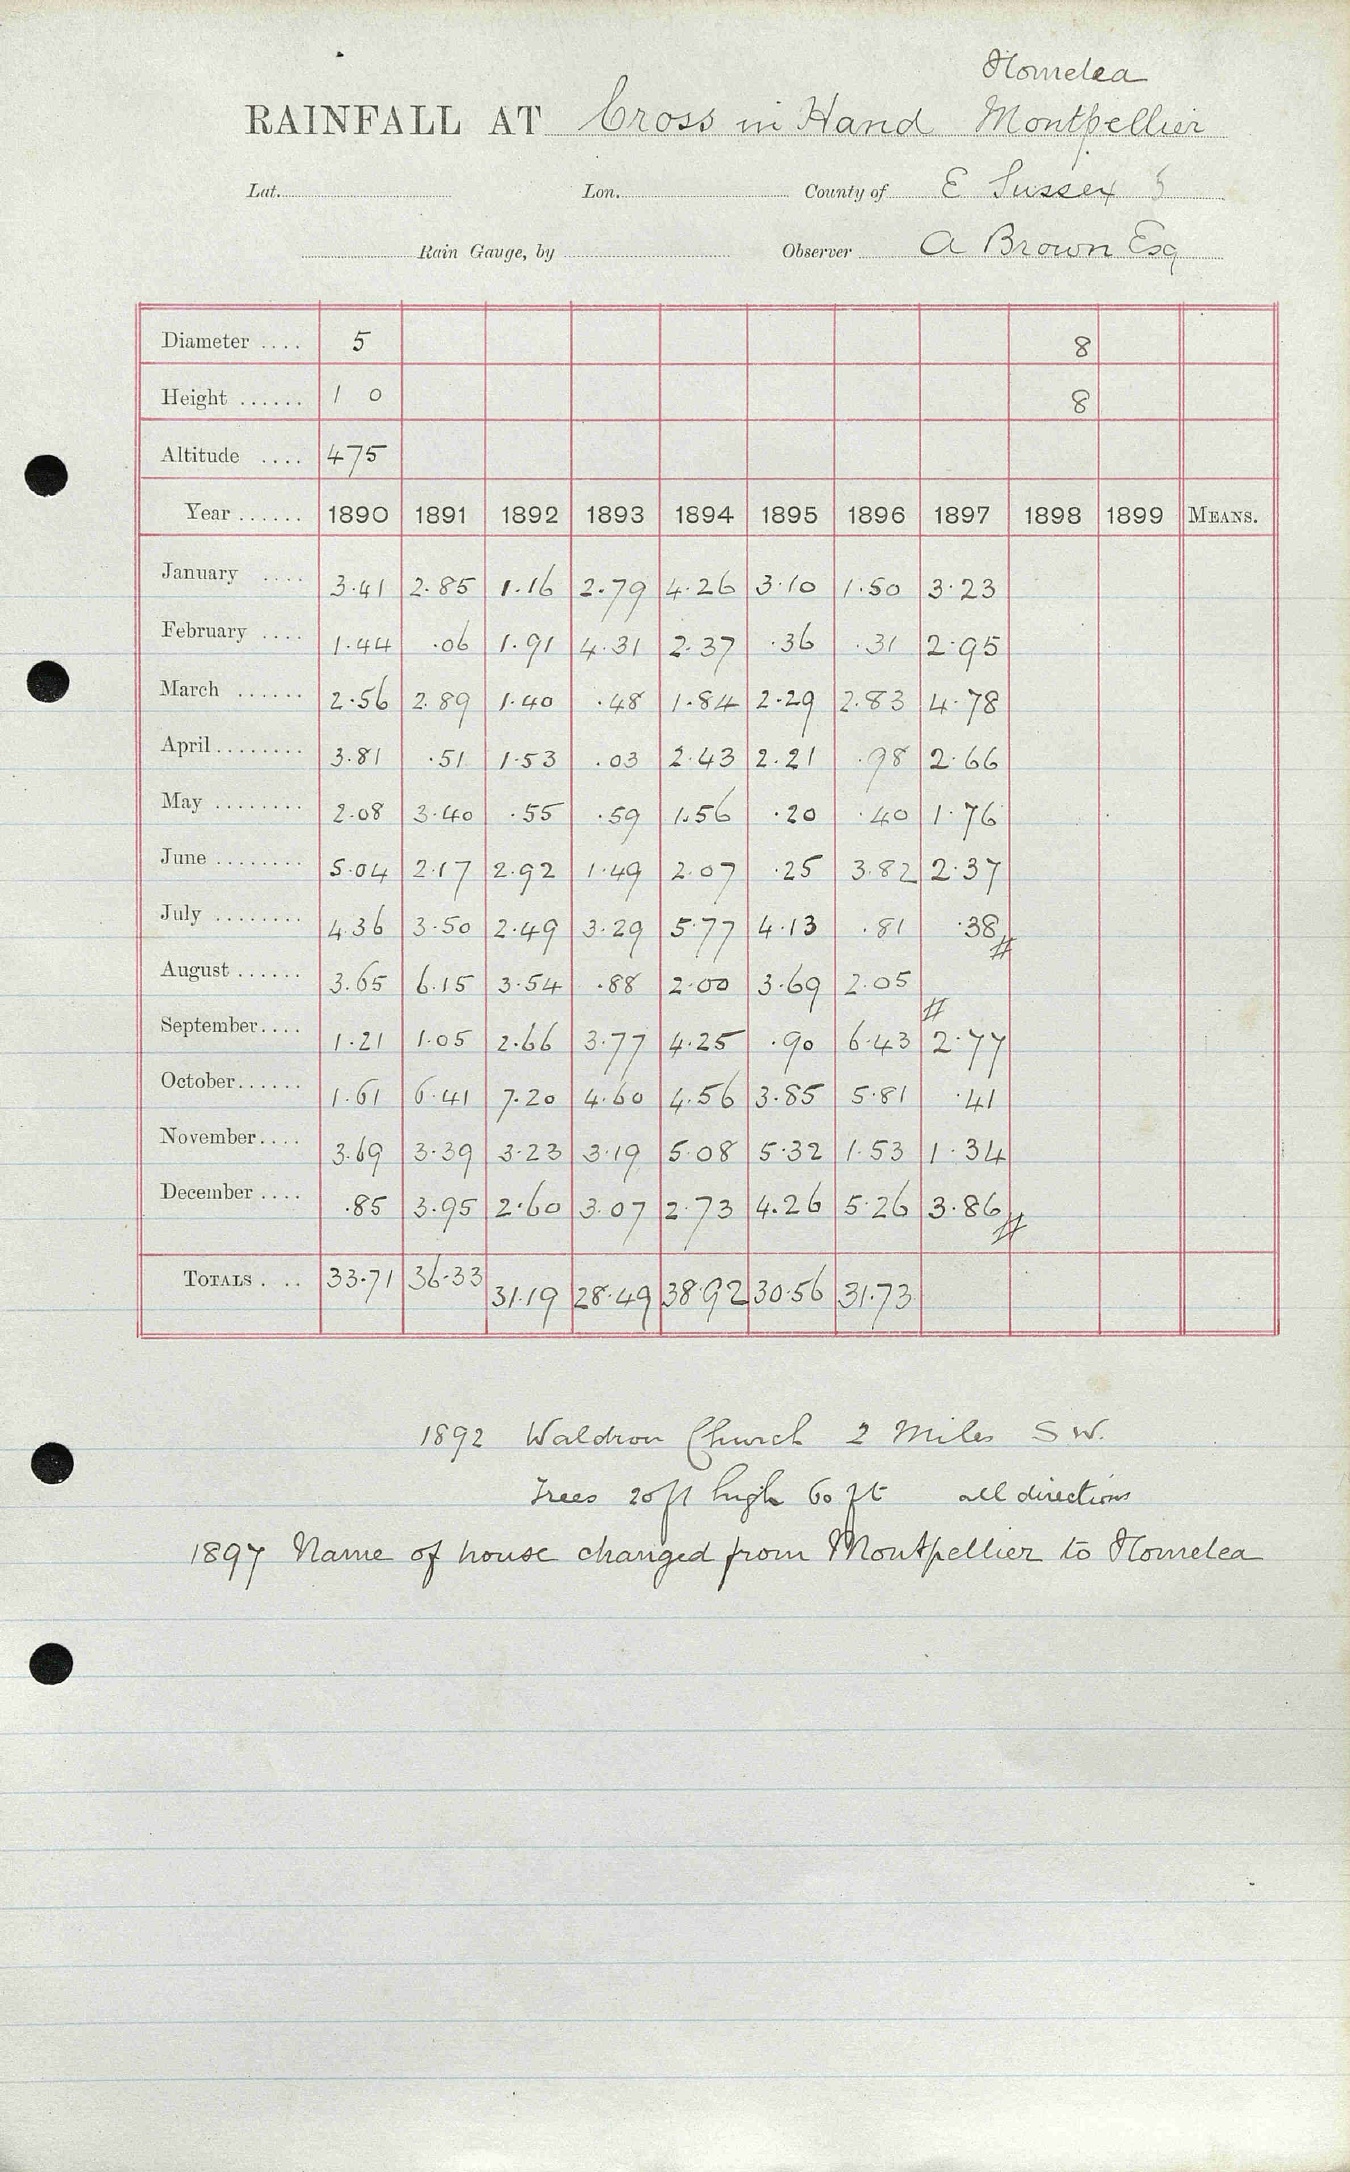 Homelea
RAINFALL AT Cross in Hand Montpellier
Lat. Lon. County of E Sussex
Rain Gauge, by Observer A Brown Esq
Diameter .... 5 8
Height ...... 1 0 8
Altitude .... 475
Year ...... 1890 1891 1892 1893 1894 1895 1896 1897 1898 1899 MEANS.
January .... 3.41 2.85 1.16 2.79 4.26 3.10 1.50 3.23
February .... 1.44 .06 1.91 4.31 2.37 .36 .31 2.95
March ...... 2.56 2.89 1.40 .48 1.84 2.29 2.83 4.78
April ........ 3.81 .51 1.53 .03 2.43 2.21 .98 2.66
May ........ 2.08 3.40 .55 .59 1.56 .20 .40 1.76
June ........ 5.04 2.17 2.92 1.49 2.07 .25 3.82 2.37
July ........ 4.36 3.50 2.49 3.29 5.77 4.13 .81 .38 #
August ...... 3.65 6.15 3.54 .88 2.00 3.69 2.05
September.... 1.21 1.05 2.66 3.77 4.25 .90 6.43 # 2.77
October...... 1.61 6.41 7.20 4.60 4.56 3.85 5.81 .41
November.... 3.69 3.39 3.23 3.19 5.08 5.32 1.53 1.34
December .... .85 3.95 2.60 3.07 2.73 4.26 5.26 3.86 #
TOTALS . .. 33.71 36.33 31.19 28.49 38.92 30.56 31.73
1892 Waldron Church 2 Miles S W.
Trees 20ft high 60 ft all directions
1897 Name of house changed from Montpellier to Homelea